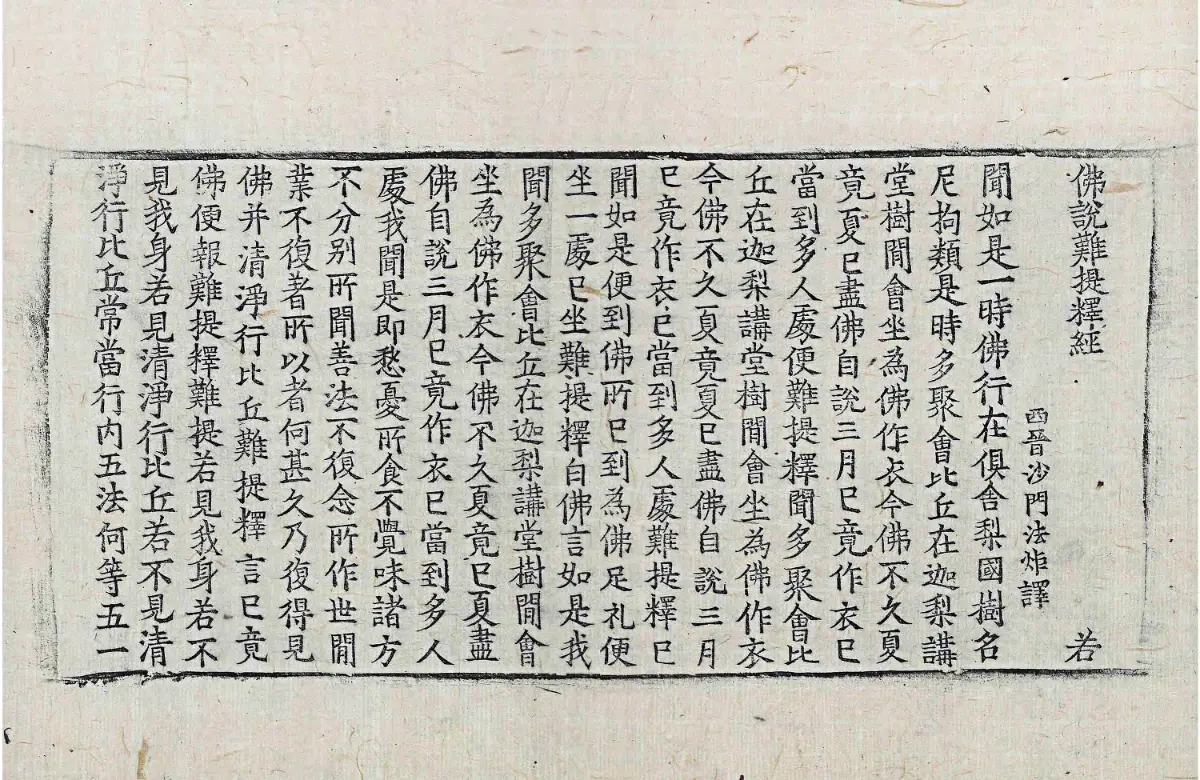 佛說難提釋經 若
西晉沙門法炬譯
聞如是一時佛行在俱舍梨國樹名
尼拘類是時多聚會比丘在迦梨講
堂樹間會坐為佛作衣今佛不久夏
竟夏已盡佛自說三月已竟作衣已
當到多人處便難提釋聞多聚會比
丘在迦梨講堂樹間會坐為佛作衣
今佛不久夏竟夏已盡佛自說三月
已竟作衣已當到多人處難提釋已
聞如是便到佛所已到為佛足礼便
坐一處已坐難提釋白佛言如是我
聞多聚會比丘在迦梨講堂樹間會
坐為佛作衣今佛不久夏竟已夏盡
佛自說三月已竟作衣已當到多人
處我聞是即愁憂所食不覺味諸方
不分別所聞善法不復念所作世間
業不復著所以者何甚久乃復得見
佛并清淨行比丘難提釋言已竟
佛便報難提釋難提若見我身若不
見我身若見清淨行比丘若不見清
淨行比丘常當行內五法何等五一